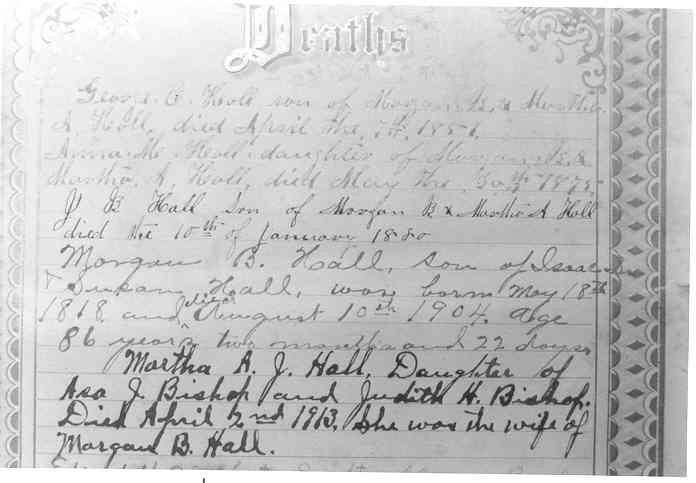 Deaths
George C. Hall son of Morgan B. & Martha
A. Hall, died April the, 7th, 1851.
Anna M. Hall daughter of Morgan B. &
Martha A. Hall, died May the 30th 1875
J B Hall Son of Morgan B & Martha A Hall
died the 10th of January 1880
Morgan B. Hall, son of Isaac
Susan Hall, was born May 18th
1818 and died August 10th 1904. age
86 years two months and 22 days
Martha A. J. Hall. Daughter of
Asa J Bishop and Judith H. Bishop.
Died April 2nd 1913. She was the wife of
Morgan B. Hall.